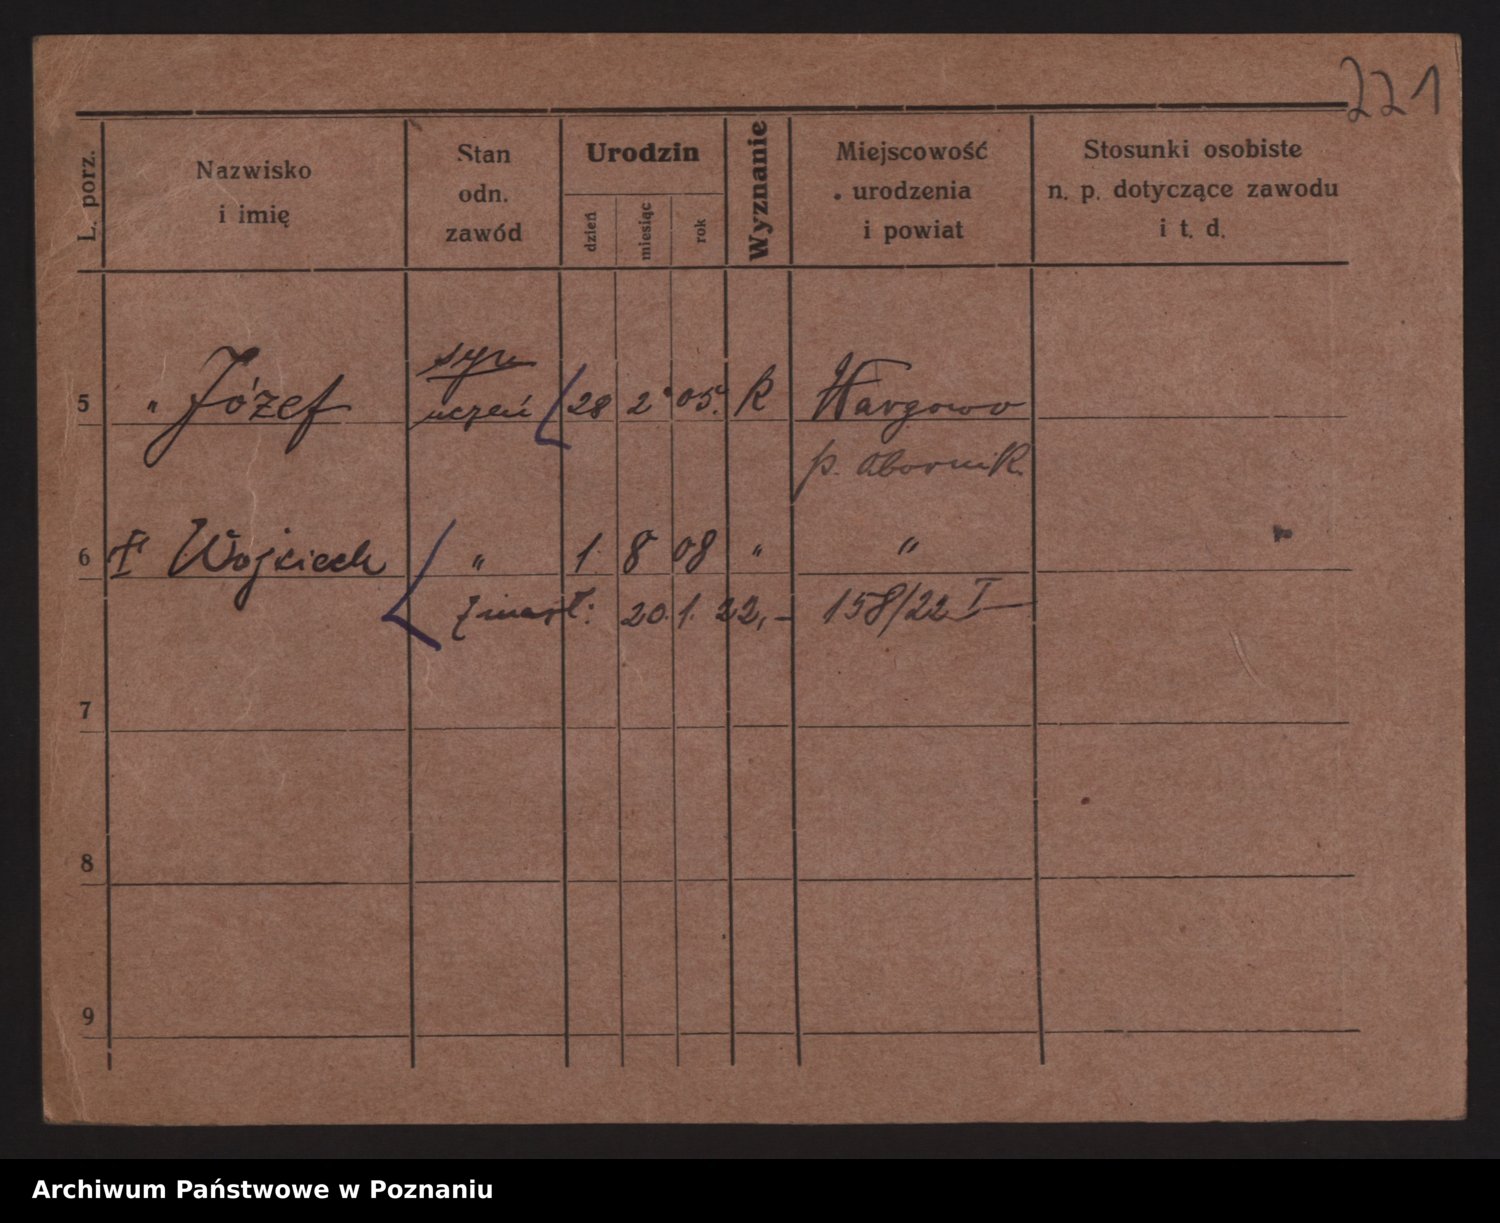 221
L. porz.
Nazwisko
i imię
Stan
odn.
zawód
Urodzin
dzień
miesiąc
rok
Wyznanie
Miejscowość
urodzenia
i powiat
Stosunki osobiste
n. p. dotyczące zawodu
i t. d.
syn
5 " Józef uczeń 28 2 05. k Wargowo
p. Obornik
6 Wojciech " 1. 8 08 " "
zmarł: 20. 1. 22,- 158/22 I
7
8
9
Archiwum Państwowe w Poznaniu